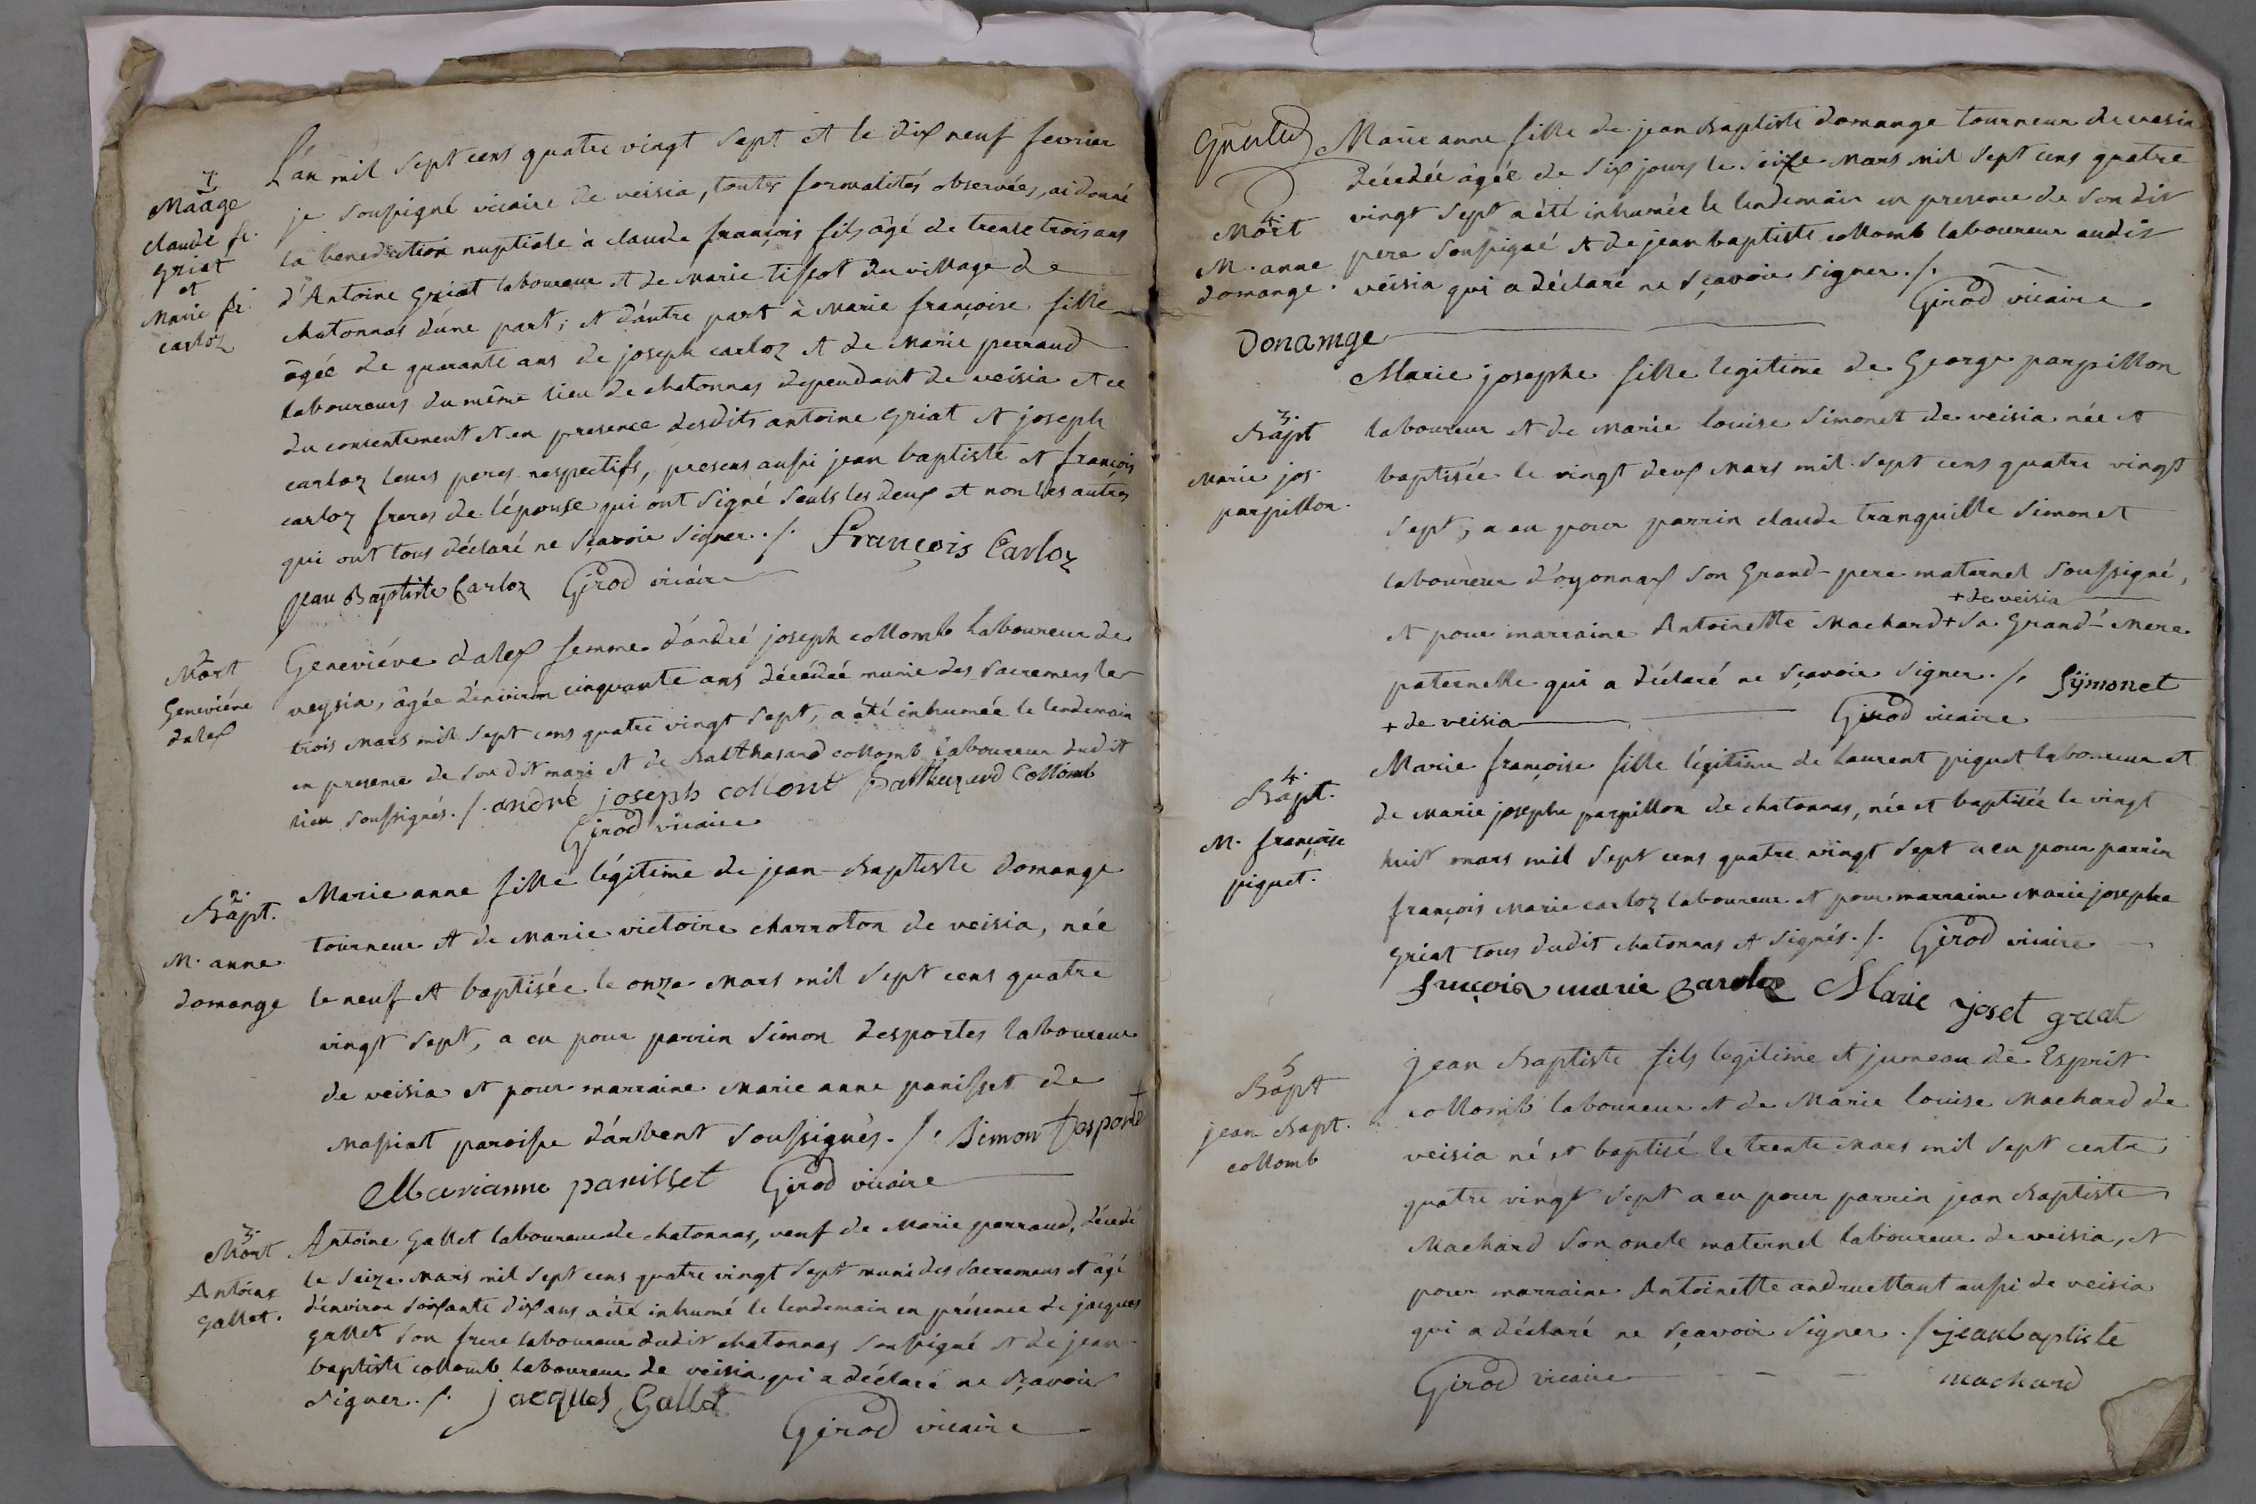 L'an mil sept cens quatre vingt sept et le dix neuf fevrier
je soussigné vicaire de veisia, toutes formalités observées, ai donné
la benediction nuptiale à claude françois fils âgé de trente trois ans
d'Antoine Griat laboureur et de Marie tissot du village de
chatonnas d'une part; et d'autre part à Marie françoise fille
âgée de quarante ans de joseph carloz et de Marie perraud
laboureurs du même lieu de chatonnas dependant de veisia et ce
du consentement et en presence desdits antoine Griat et joseph
carloz leurs peres respectifs, presens aussi jean baptiste et françois
carloz freres de l'épouse qui ont signé seuls les deux et non les autres
qui ont tous déclaré ne sçavoir signer ./. François Carloz
Jean Baptiste Carloz Girod vicaire
1
Maage
claude fr.
griat
et
Marie fr.
carloz
Geneviéve dalex femme d'andré joseph collomb laboureur de
veysia, âgée d'environ cinquante ans décédée munie des sacremens le
trois Mars mil sept cens quatre vingt sept, a été inhumée le lendemain
en presence de son dit mari et de Balthasard collomb laboureur dudit
lieu soussignés ./. andré joseph collont Balthazard Collomb
Girod vicaire
2
Mort
Geneviéve
dalex
Marie anne fille légitime de jean-Baptiste domange
tourneur et de Marie victoire charroton de veisia, née
le neuf et baptisée le onze Mars mil sept cens quatre
vingt sept, a eu pour parrin Simon desportes laboureur
de veisia et pour marraine Marie anne panisset de
Massiat paroisse d'arbent soussignés ./. Simon Desporte
Marianne panisset Girod vicaire
2.
Bapt.
M. anne
domange
Antoine Gallet laboureur de chatonnas, veuf de Marie perraud, décedé
le seize Mars mil sept cens quatre vingt sept muni des sacremens et âgé
d'environ soixante dix ans a été inhumé le lendemain en présence de jacques
gallet son frere laboureur dudit chatonnas soussigné et de jean
baptiste collomb laboureur de veisia qui a déclaré ne sçavoir
signer ./. jacques Gallet
Girod vicaire
3.
Mort
Antoine
Gallet.
Marie anne fille de jean Baptiste domange tourneur de veisia
décedée âgée de six jours le seize Mars mil sept cens quatre
vingt sept a été inhumée le lendemain en presence de son dit
pere soussigné et de jean baptiste collomb laboureur audit
veisia qui a déclaré ne sçavoir signer ./.
Girod vicaire
Donamge
4
Mort
M. anne
domange.
Marie josephe fille legitime de George parpillon
laboureur et de Marie louise Simonet de veisia née et
baptisée le vingt deux Mars mil sept cens quatre vingt
sept, a eu pour parrin claude tranquille Simonet
laboureur d'oyonnax son Grand-pere maternel soussigné,
+ de veisia
et pour marraine Antoinette Machard + sa Grand-Mere
paternelle qui a déclaré ne sçavoir signer ./. Sÿmonet
+ de veisia Girod vicaire
3.
Bapt
Marie jos.
parpillon.
Marie françoise fille légitime de Laurent piquet laboureur et
de Marie josephe parpillon de chatonnas, née et baptisée le vingt
huit mars mil sept cens quatre vingt sept a eu pour parrin
françois Marie carloz laboureur et pour marraine Marie josephe
Griat tous dudit chatonnas et signés ./. Girod vicaire
françois marie carloz Marie joset griat
4.
Bapt.
M. françoise
piquet.
jean Baptiste fils legitime et jumeau de Esprit
collomb laboureur et de Marie louise Machard de
veisia né et baptisé le trente Mars mil sept cents
quatre vingt sept a eu pour parrin jean Baptiste
Machard son oncle maternel laboureur de veisia, et
pour marraine Antoinette andruettant aussi de veisia
qui a déclaré ne sçavoir signer ./. jean baptiste
Girod vicaire machard
5
Bapt
jean Bapt.
collomb